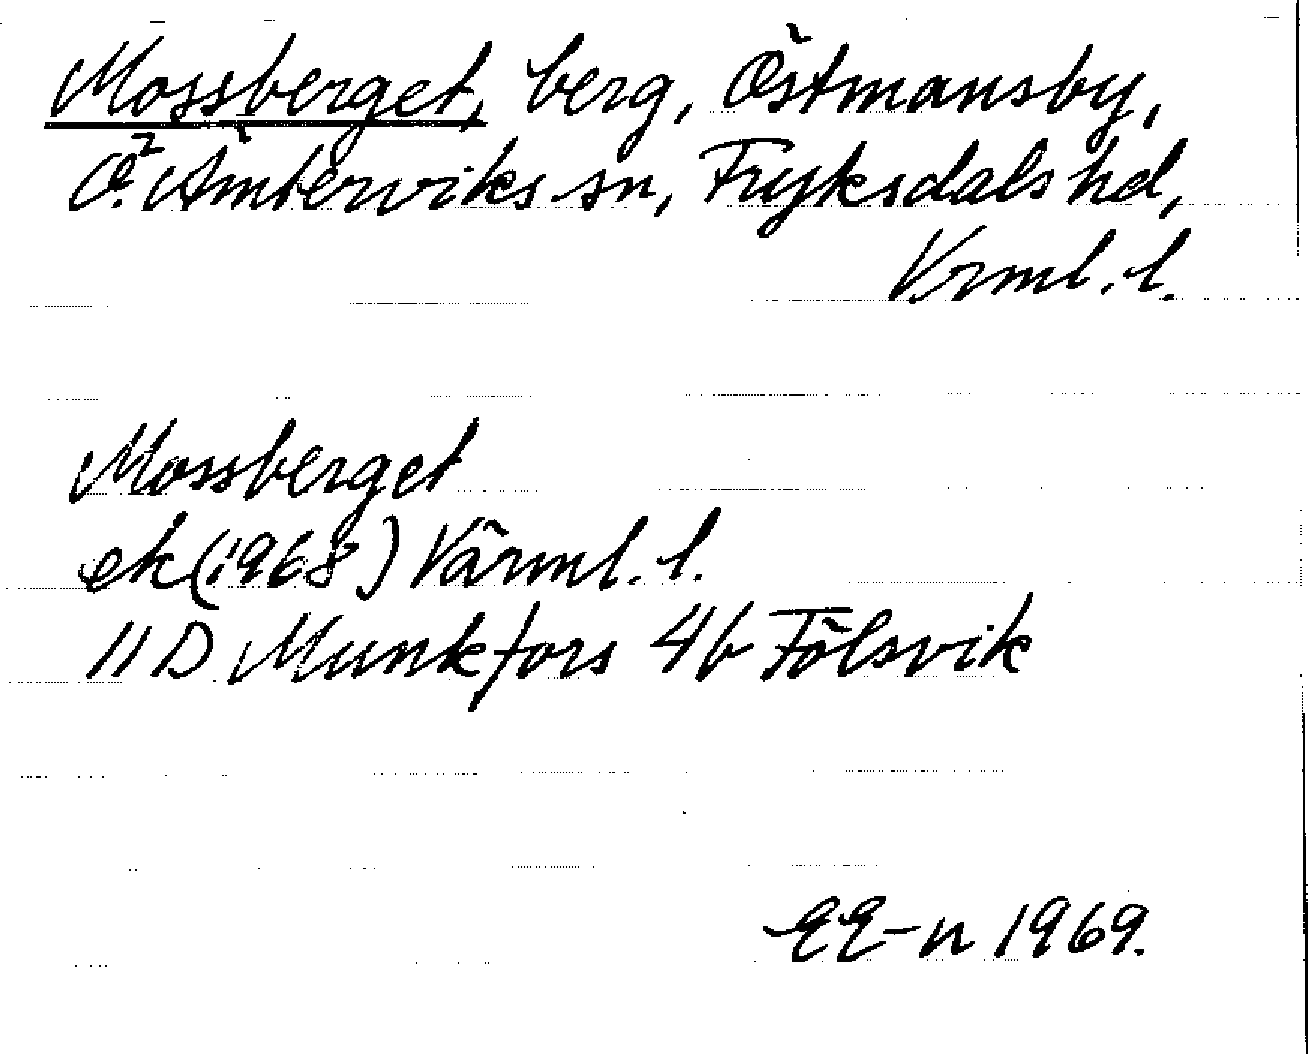 Mossberget, berg, Östmansby,
Ö. Ämterviks sn, Fryksdals hd,
Vrml. l.
Mossberget
ek (1968) Värml. l.
11 D Munkfors 4b Fölsvik
EE-n 1969.